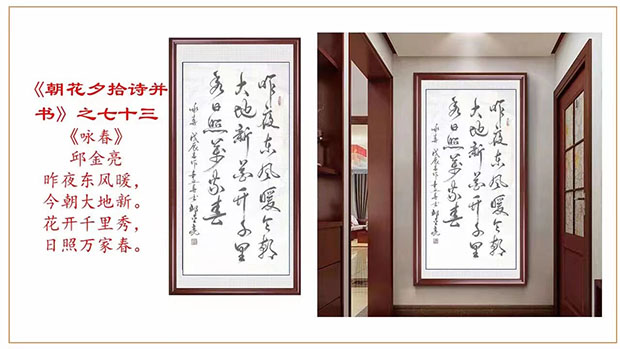 《朝花夕拾诗并
书》之七十三
《咏春》
邱金亮
昨夜东风暖，
今朝大地新。
花开千里秀，
日照万家春。
昨夜东风暖今朝
大地新花开千里
秀日照万家春
昨夜东风暖今朝
大地新花开千里
秀日照万家春